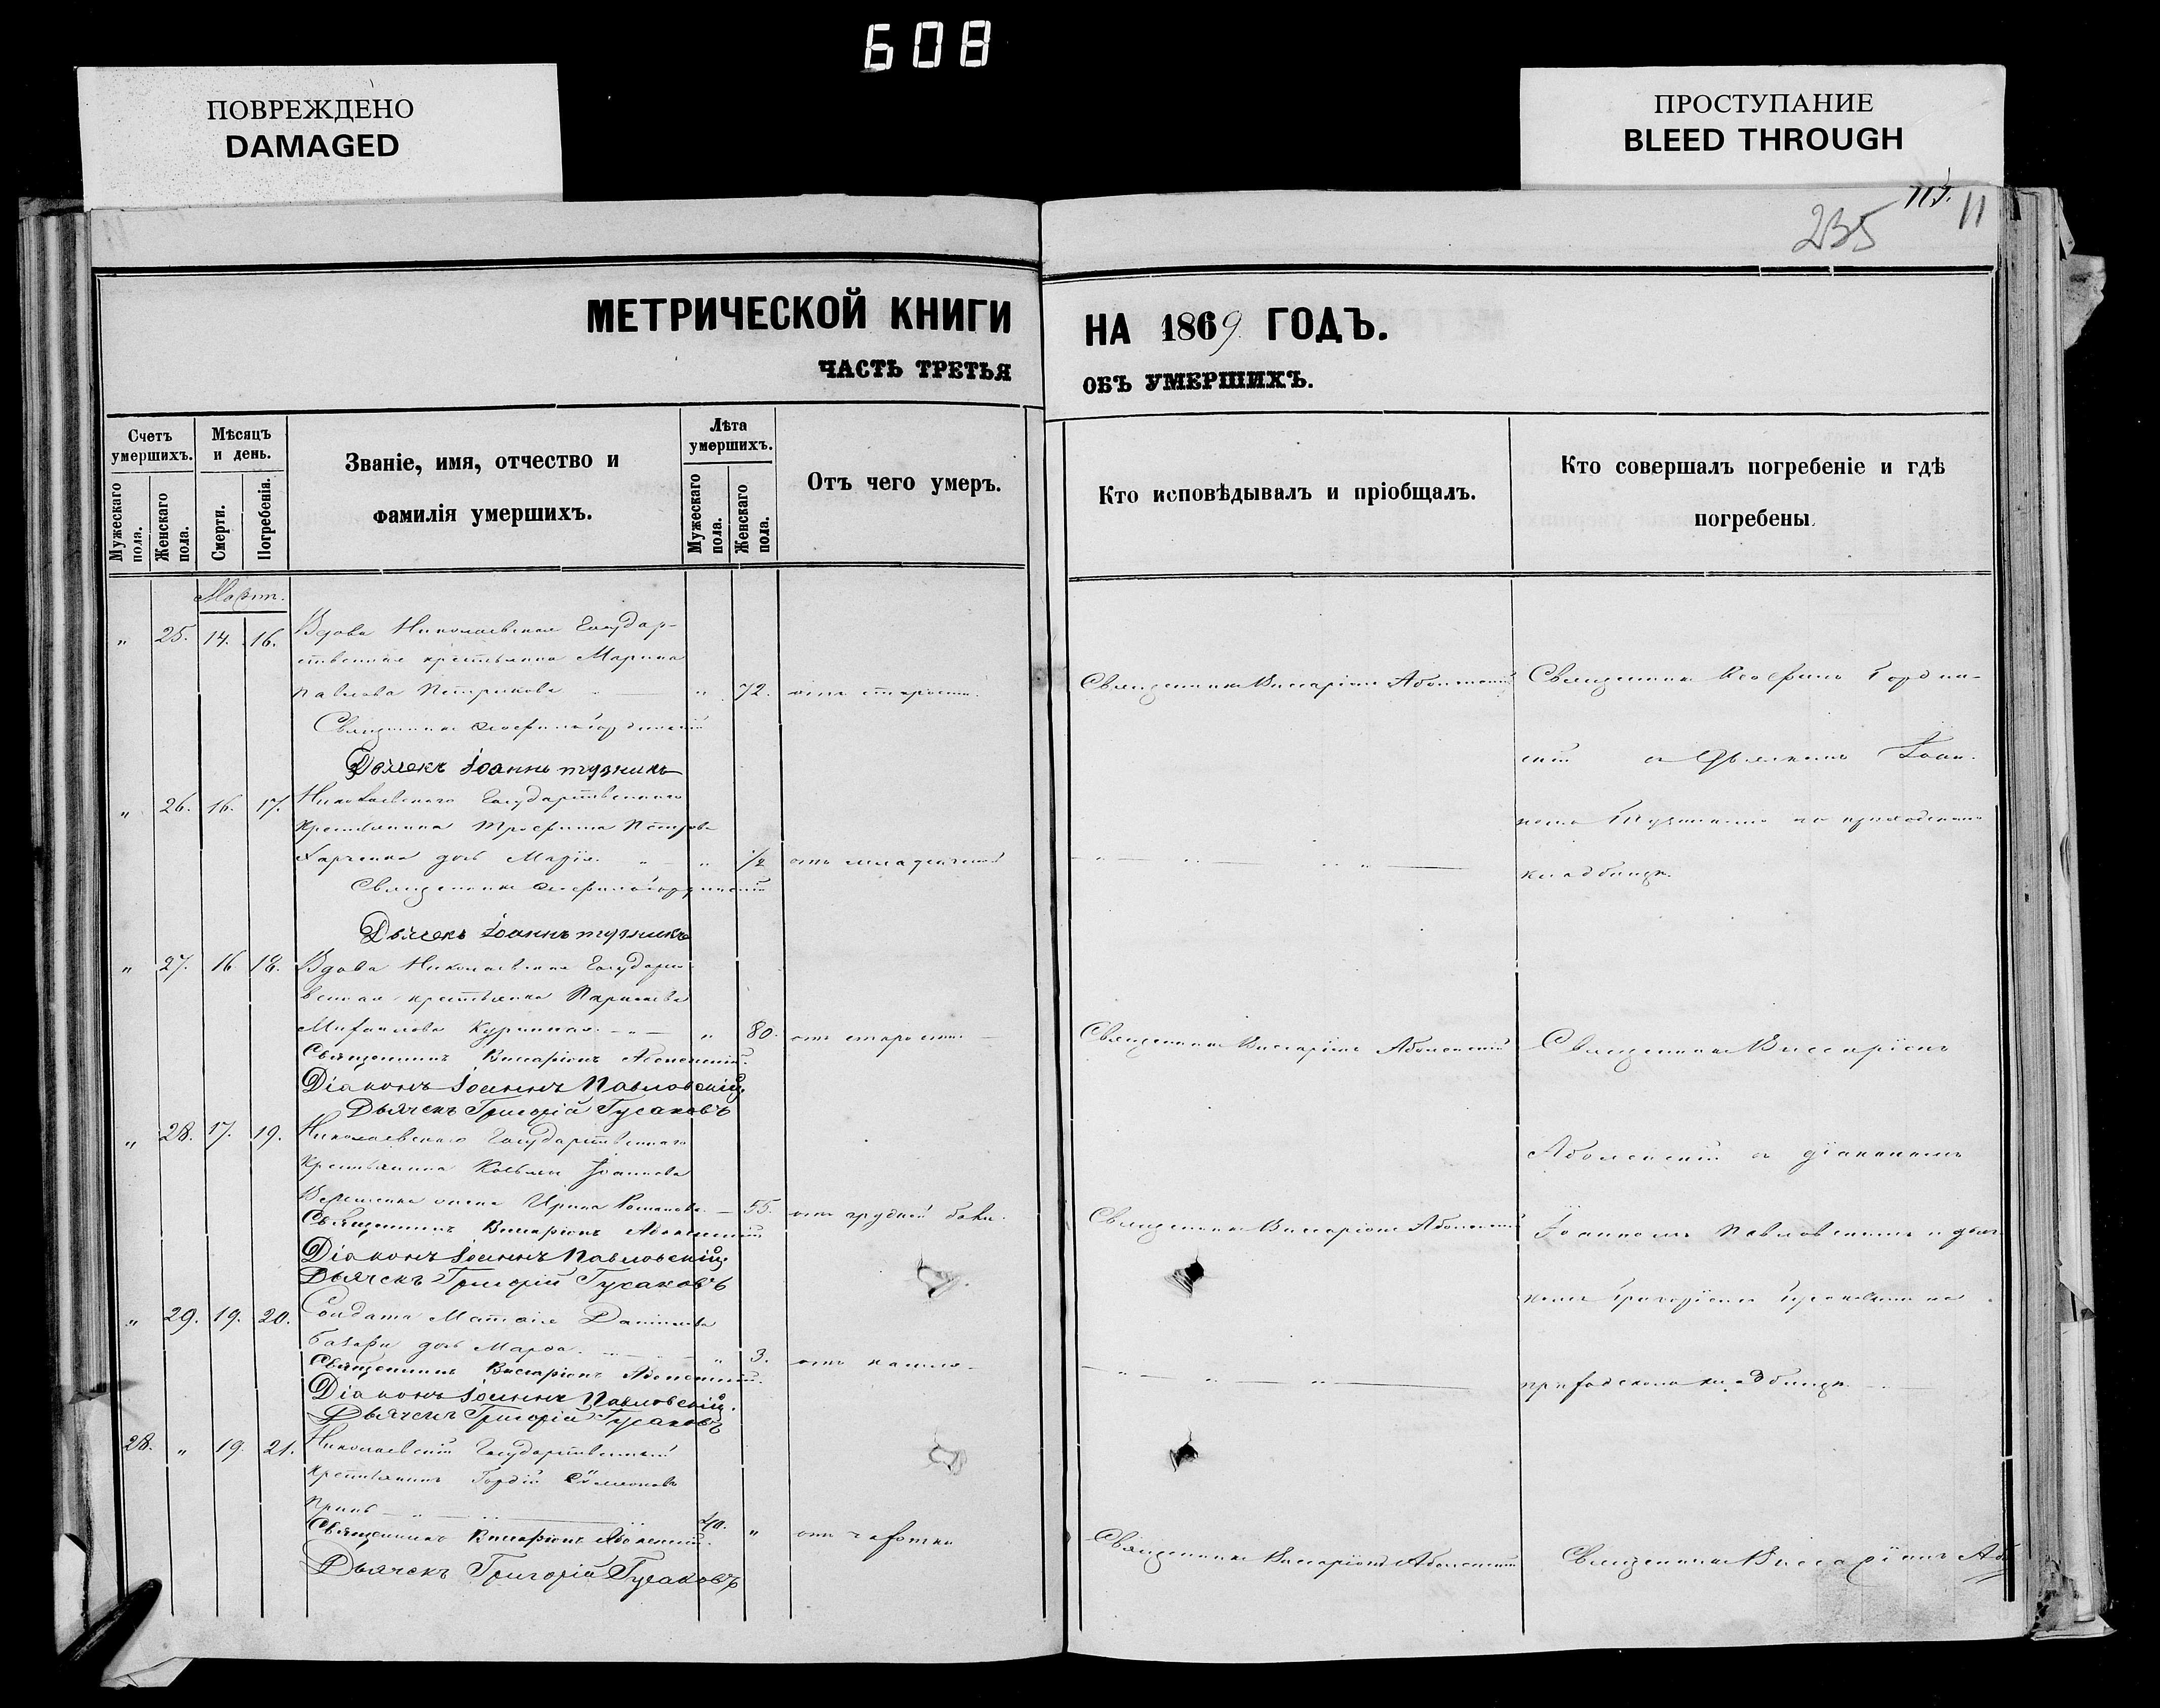 608
ПОВРЕЖДЕНО
DAMAGED
ПРОСТУПАНИЕ
BLEED THROUGH
235
11
МЕТРИЧЕСКОЙ КНИГИ
НА 1869 ГОДЪ.
ЧАСТЬ ТРЕТЬЯ
ОБЪ УМЕРШИХЪ.
Счетъ умершихъ.
Мужескаго пола.
Женскаго пола.
Мѣсяцъ и день.
Смерти.
Погребенія.
Званіе, имя, отчество и
фамилія умершихъ.
Лѣта умершихъ.
Мужескаго пола.
Женскаго пола.
Отъ чего умеръ.
Кто исповѣдывалъ и пріобщалъ.
Кто совершалъ погребеніе и гдѣ
погребены.
Мартъ.
" 25. 14. 16. Вдова Николаевская Государ-
ственная крестьянка Марина
Павлова Петрикова " 72. отъ старости.
Священникъ Виссаріонъ Аболенскій
Священникъ Іосифъ Гордин-
Священникъ Іосифъ Гординскій
Дьячекъ Іоаннъ Тузникъ
скій съ Дьячкомъ Іоан-
" 26. 16. 17. Николаевскаго Государственнаго
Крестьянина Трофима Петрова
Харченка дочь Марія " 1/2 отъ младенческой
номъ Тузникомъ на приходскомъ
кладбищѣ.
Священникъ Іосифъ Гординскій
Дьячекъ Іоаннъ Тузникъ
" 27. 16 18. Вдова Николаевская Государст-
венная крестьянка Параскева
Михайлова Куринная " 80. отъ старости
Священникъ Виссаріонъ Аболенскій
Священникъ Виссаріонъ
Священникъ Виссаріонъ Аболенскій.
Діаконъ Іоаннъ Павловскій
Дьячекъ Григорій Гусаковъ
" 28. 17. 19. Николаевскаго Государственнаго
Крестьянина Косьмы Іоаннова
Аболенскій съ діакономъ
жена Ирина Романова 55. отъ грудной боли.
Священникъ Виссаріонъ Аболенскій
Іоанномъ Павловскимъ и дьяч-
Священникъ Виссаріонъ Аболенскій
Діаконъ Іоаннъ Павловскій
Дьячекъ Григорій Гусаковъ
комъ Григоріемъ Гусаковымъ на
" 29. 19. 20. Солдата Матѳія Даніилова
дочь Марѳа. " 3. отъ кашля
приходскомъ кладбищѣ
Священникъ Виссаріонъ Аболенскій.
Діаконъ Іоаннъ Павловскій.
Дьячекъ Григорій Гусаковъ
28. " 19. 21. Николаевскій Государственный
Крестьянинъ Гордій Симеоновъ
40. " отъ чахотки
Священникъ Виссаріонъ Аболенскій
Священникъ Виссаріонъ Аб
Священникъ Виссаріонъ Аболенскій.
Дьячекъ Григорій Гусаковъ